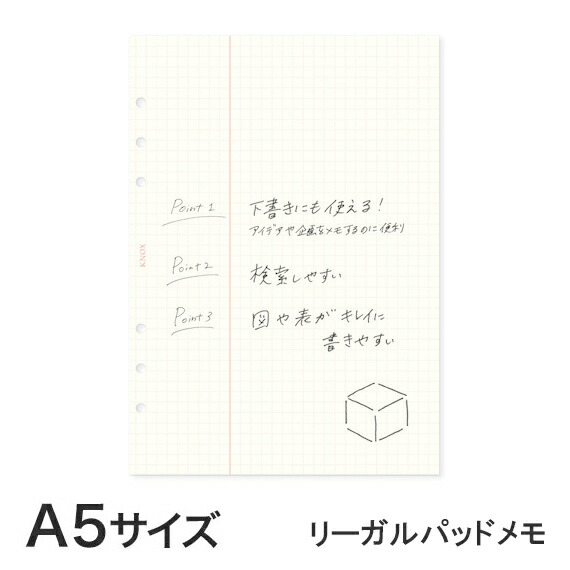 Point 1 下書きにも使える!
アイデアや企画をメモするのに便利
KNOX
Point 2 検索しやすい
Point 3 図や表がキレイに
書きやすい
A5サイズ リーガルパッドメモ